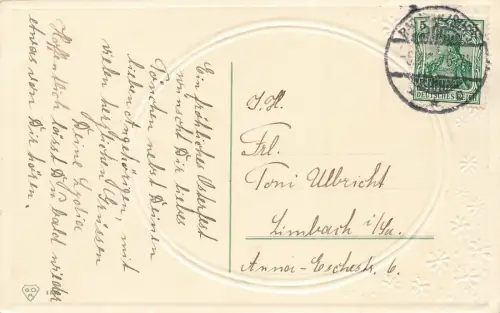 Ein fröhliches Osterfest
wünscht Dir liebes
Tönchen nebst Deinen
lieben Angehörigen, mit
vielen herzlichen Grüssen
Deine Lydia
Hoffentlich lässt Du bald wieder
etwas von Dir hören.
S. H.
Frl.
Toni Ulbricht
Limbach i/Sa.
Anna-Eschestr. 6.
5
5
DEUTSCHES REICH